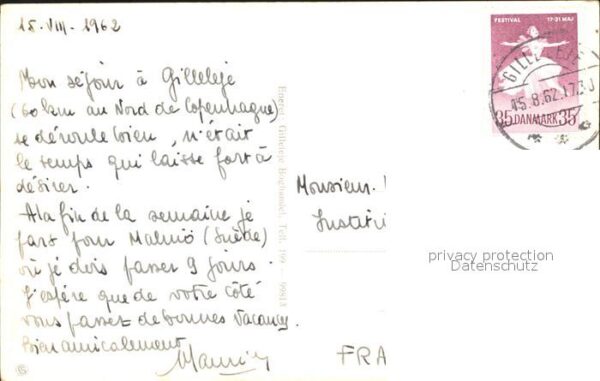 15.VIII.1962
Mon séjour à Gilleleje
(60 km au Nord de Copenhague)
se déroule bien, n'était
le temps qui laisse fort à
désirer.
A la fin de la semaine je
pars pour Malmö (Suède)
où je dois passer 9 jours.
J'espère que de votre côté
vous passez de bonnes vacances.
Bien amicalement
Eneret Gilleleje Boghandel, Telf. 199
FESTIVAL 17-31 MAJ
GILLELEJE
15.8.62.17.30
35 DANMARK 35
Monsieur
FRA
privacy protection
Datenschutz